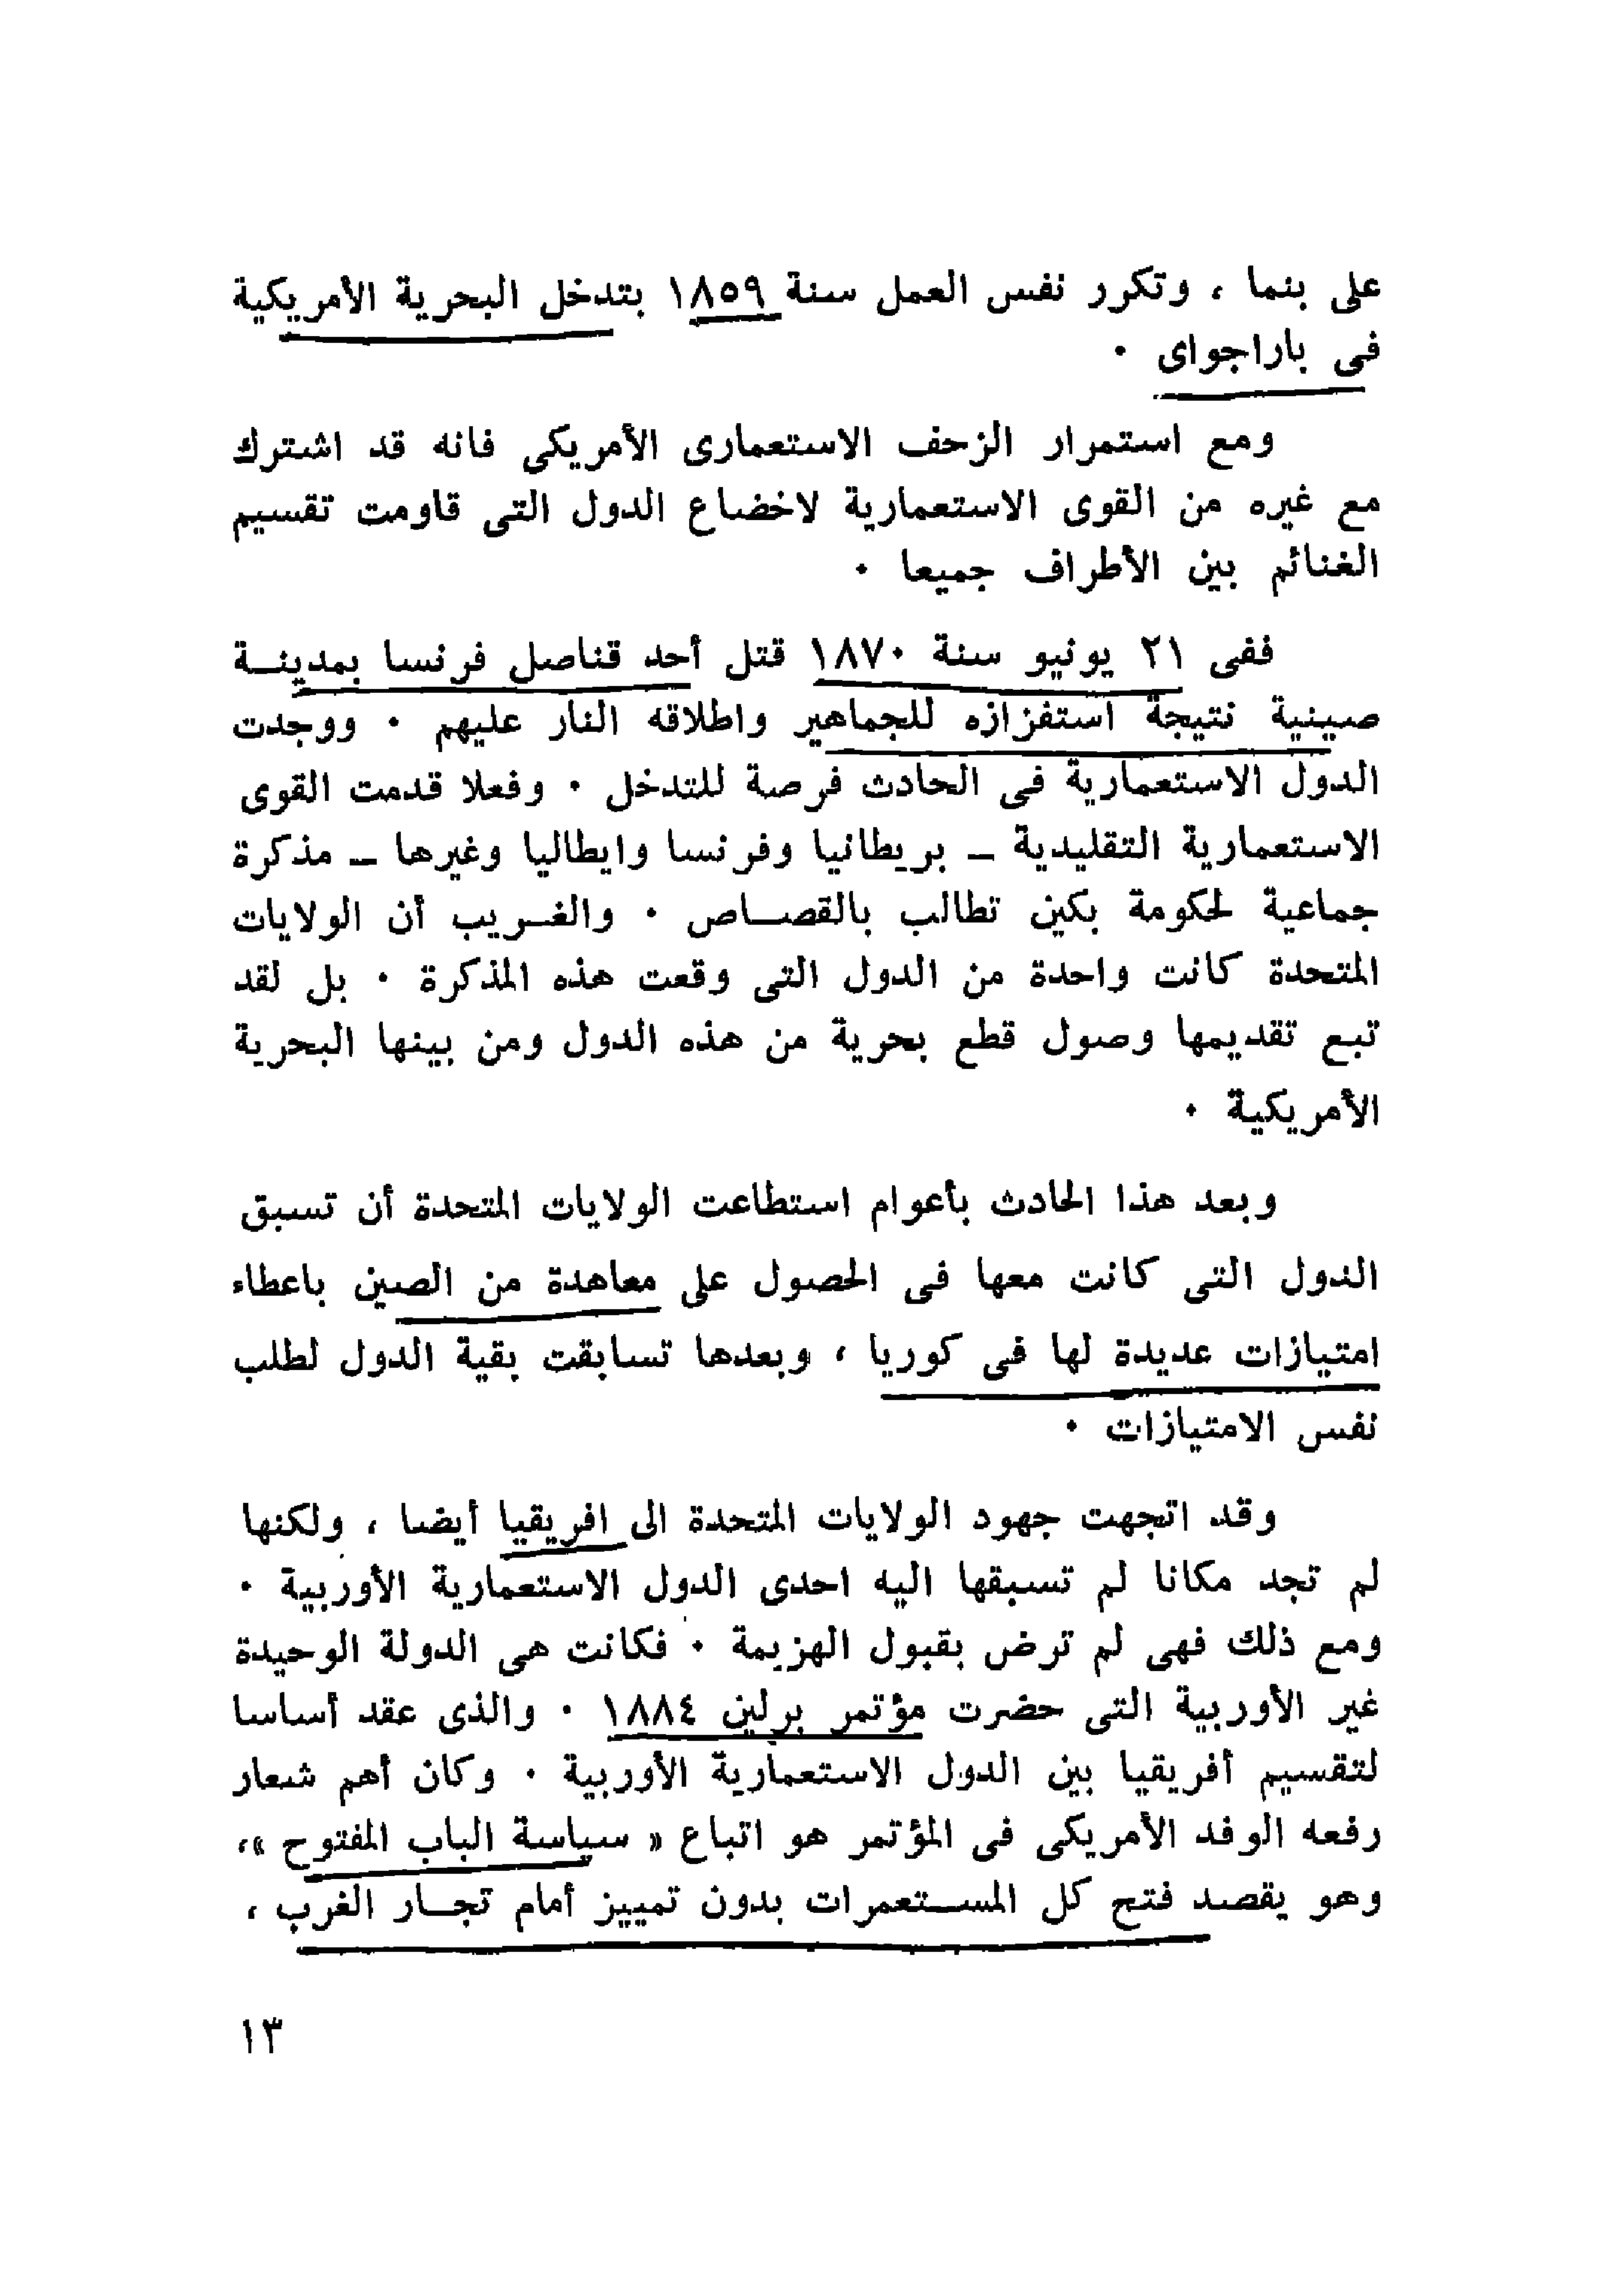 على بنما ، وتكرر نفس العمل سنة ١٨٥٩ بتدخل البحرية الأمريكية
فى باراجواى ٠
ومع استمرار الزحف الاستعمارى الأمريكى فانه قد اشترك
مع غيره من القوى الاستعمارية لاخضاع الدول التى قاومت تقسيم
الغنائم بين الأطراف جميعا ٠
ففى ٢١ يونيو سنة ١٨٧٠ قتل أحد قناصل فرنسا بمدينـة
صينية نتيجة استفزازه للجماهير واطلاقه النار عليهم ٠ ووجدت
الدول الاستعمارية فى الحادث فرصة للتدخل ٠ وفعلا قدمت القوى
الاستعمارية التقليدية ــ بريطانيا وفرنسا وايطاليا وغيرها ــ مذكرة
جماعية لحكومة بكين تطالب بالقصـاص ٠ والغـريب أن الولايات
المتحدة كانت واحدة من الدول التى وقعت هذه المذكرة ٠ بل لقد
تبع تقديمها وصول قطع بحرية من هذه الدول ومن بينها البحرية
الأمريكية ٠
وبعد هذا الحادث بأعوام استطاعت الولايات المتحدة أن تسبق
الدول التى كانت معها فى الحصول على معاهدة من الصين باعطاء
امتيازات عديدة لها فى كوريا ، وبعدها تسابقت بقية الدول لطلب
نفس الامتيازات ٠
وقد اتجهت جهود الولايات المتحدة الى افريقيا أيضا ، ولكنها
لم تجد مكانا لم تسبقها اليه احدى الدول الاستعمارية الأوربية ٠
ومع ذلك فهى لم ترض بقبول الهزيمة ٠ فكانت هى الدولة الوحيدة
غير الأوربية التى حضرت مؤتمر برلين ١٨٨٤ ٠ والذى عقد أساسا
لتقسيم أفريقيا بين الدول الاستعمارية الأوربية ٠ وكان أهم شعار
رفعه الوفد الأمريكى فى المؤتمر هو اتباع « سياسة الباب المفتوح »،
وهو يقصد فتح كل المسـتعمرات بدون تمييز أمام تجـار الغرب ،
١٣